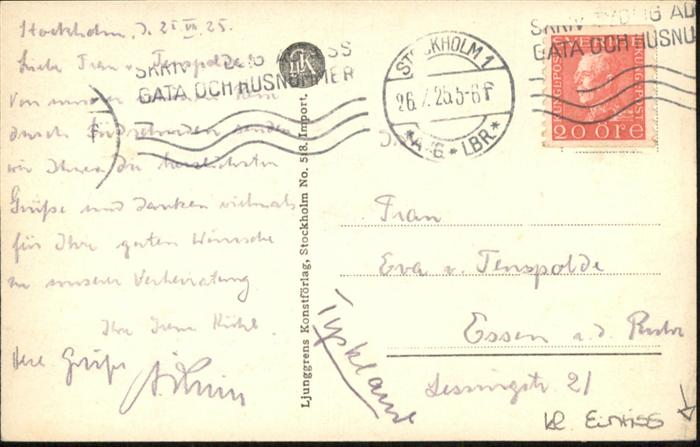 Stockholm, d. 25. VII. 25.
Liebe Frau v. Tenspolde!
Von unserer
durch senden
wir Ihnen die herzlichsten
Grüße und danken vielmals
für Ihre guten Wünsche
zu unserer Verheiratung
Ihre Irene
Herzl Grüße
SKRIV TYDLIG ADRESS
GATA OCH HUSNUMMER
LJK
Ljunggrens Konstförlag, Stockholm No. 518. Import.
STOCKHOLM 1
26.7.25.5-6 F
* AVG * LBR *
SKRIV TYDLIG AD
GATA OCH HUSNU
20 ÖRE
Frau
Eva v. Tenspolde
Essen a. d. Ruhr
Lessingstr. 21
Tyskland
kl. Einriss